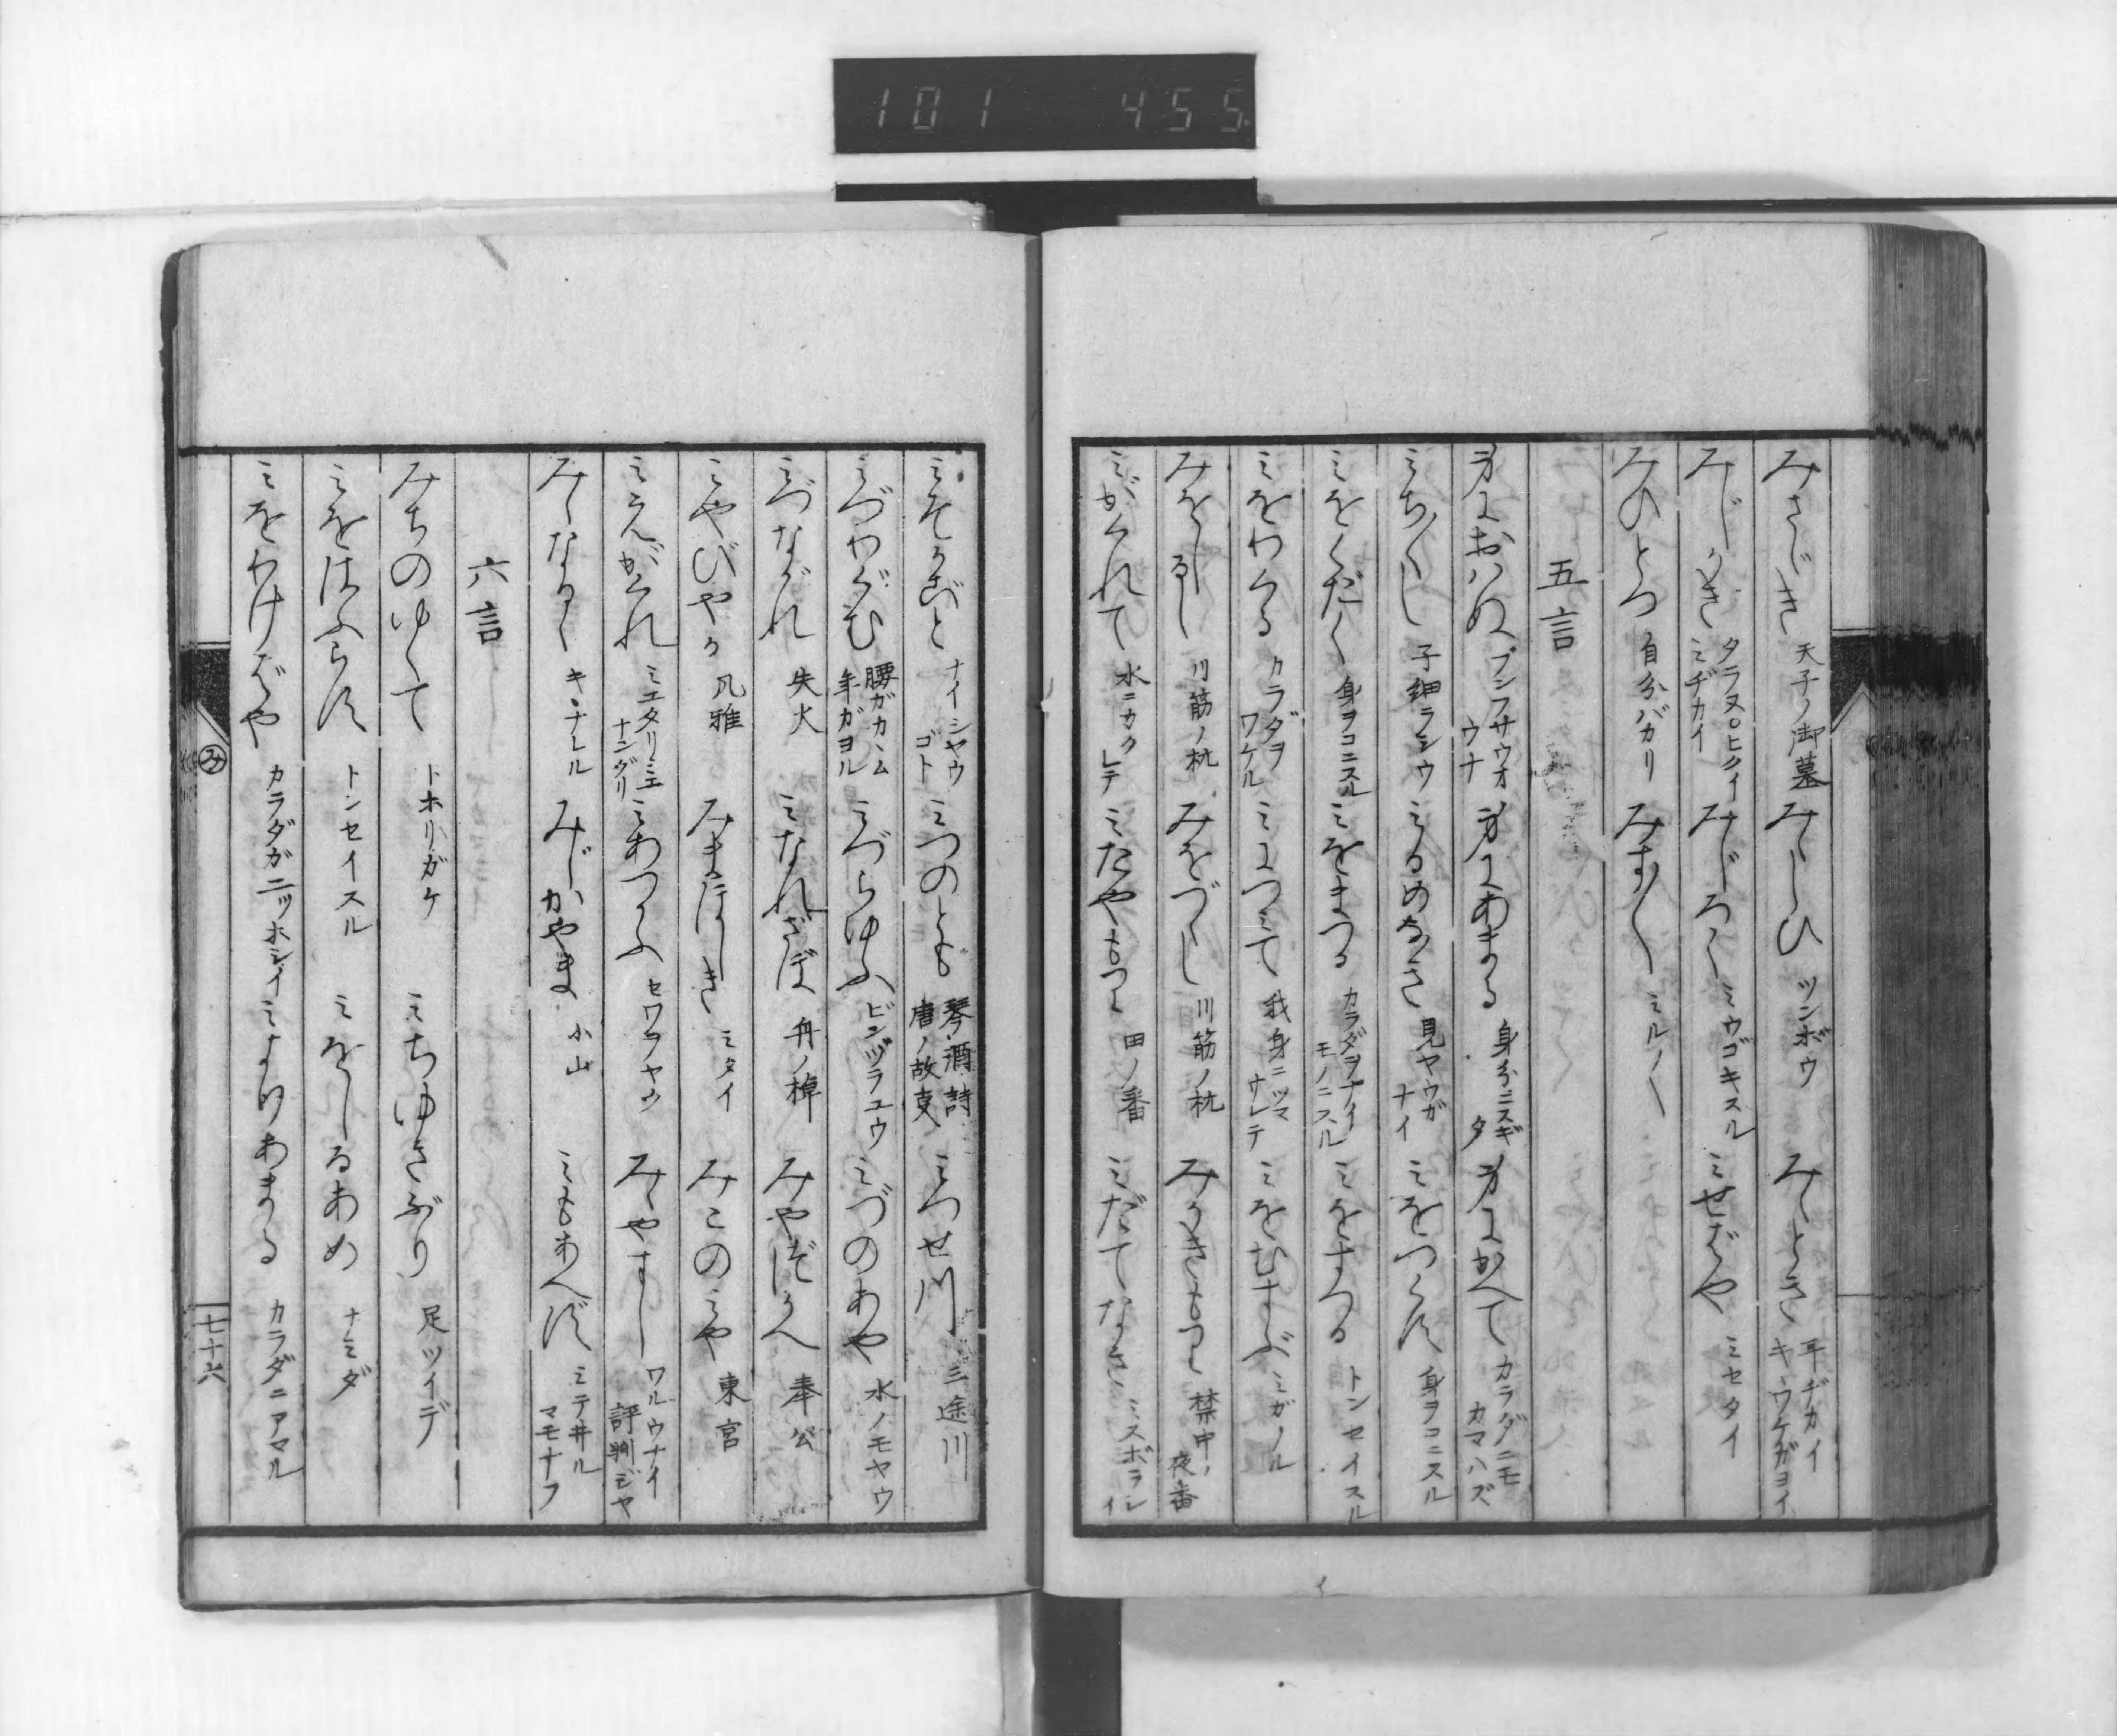 101 455
みさゞき 天子ノ御墓 みゝしひ ツンボウ みゝとき 耳ヂカイ キヽワケガヨイ
みじかき タラヌ○ヒクイ ミヂカイ みじろく ミウゴキスル みせばや ミセタイ
みひとつ 自分バカリ みす／＼ ミル／＼
五言
身におはぬ ブンフサウオウナ 身にあまる 身分ニスギタ 身にかへて カラダニモカマハズ
みち／＼し 子細ラシウ みるめなき 見ヤウガナイ みをつくす 身ヲコニスル
みをくだく 身ヲコニスル みをまつる カラダヲナイモノニスル みをすつる トンセイスル
みをわくる カラダヲワケル みにつみて 我身ニツマサレテ みをむすぶ ミガノル
みをじるし 川筋ノ杭 みをづくし 川筋ノ杭 みかきもり 禁中ノ夜番
みがくれて 水ニカクレテ みたやもり 田ノ番 みだてなき ミスボラシイ
みそかごと ナイシヤウゴト みつのとも 琴酒詩 唐ノ故事 みつせ川 三途川
みづわぐむ 腰ガカヾム 年ガヨル みづらゆふ ビンヅラユウ みづのあや 水ノモヤウ
みづながれ 失火 みなれざほ 舟ノ棹 みやづかへ 奉公
みやびやか 風雅 みまほしき ミタイ みこのみや 東宮
みえんがくれ ミエタリミエナンダリ みあつかふ セワヲヤク みゝやすし ワルウナイ評判ジヤ
みゝなるゝ キヽナレル みじかやま 小山 みもあへず ミテ井ルマモナフ
六言
みちのゆくて トホリガケ みちゆきぶり 足ツイデ
みをはふらす トンセイスル みをしるあめ ナミダ
みをわけばや カラダガニツホシイ みよりあまる カラダニアマル
み
七十六